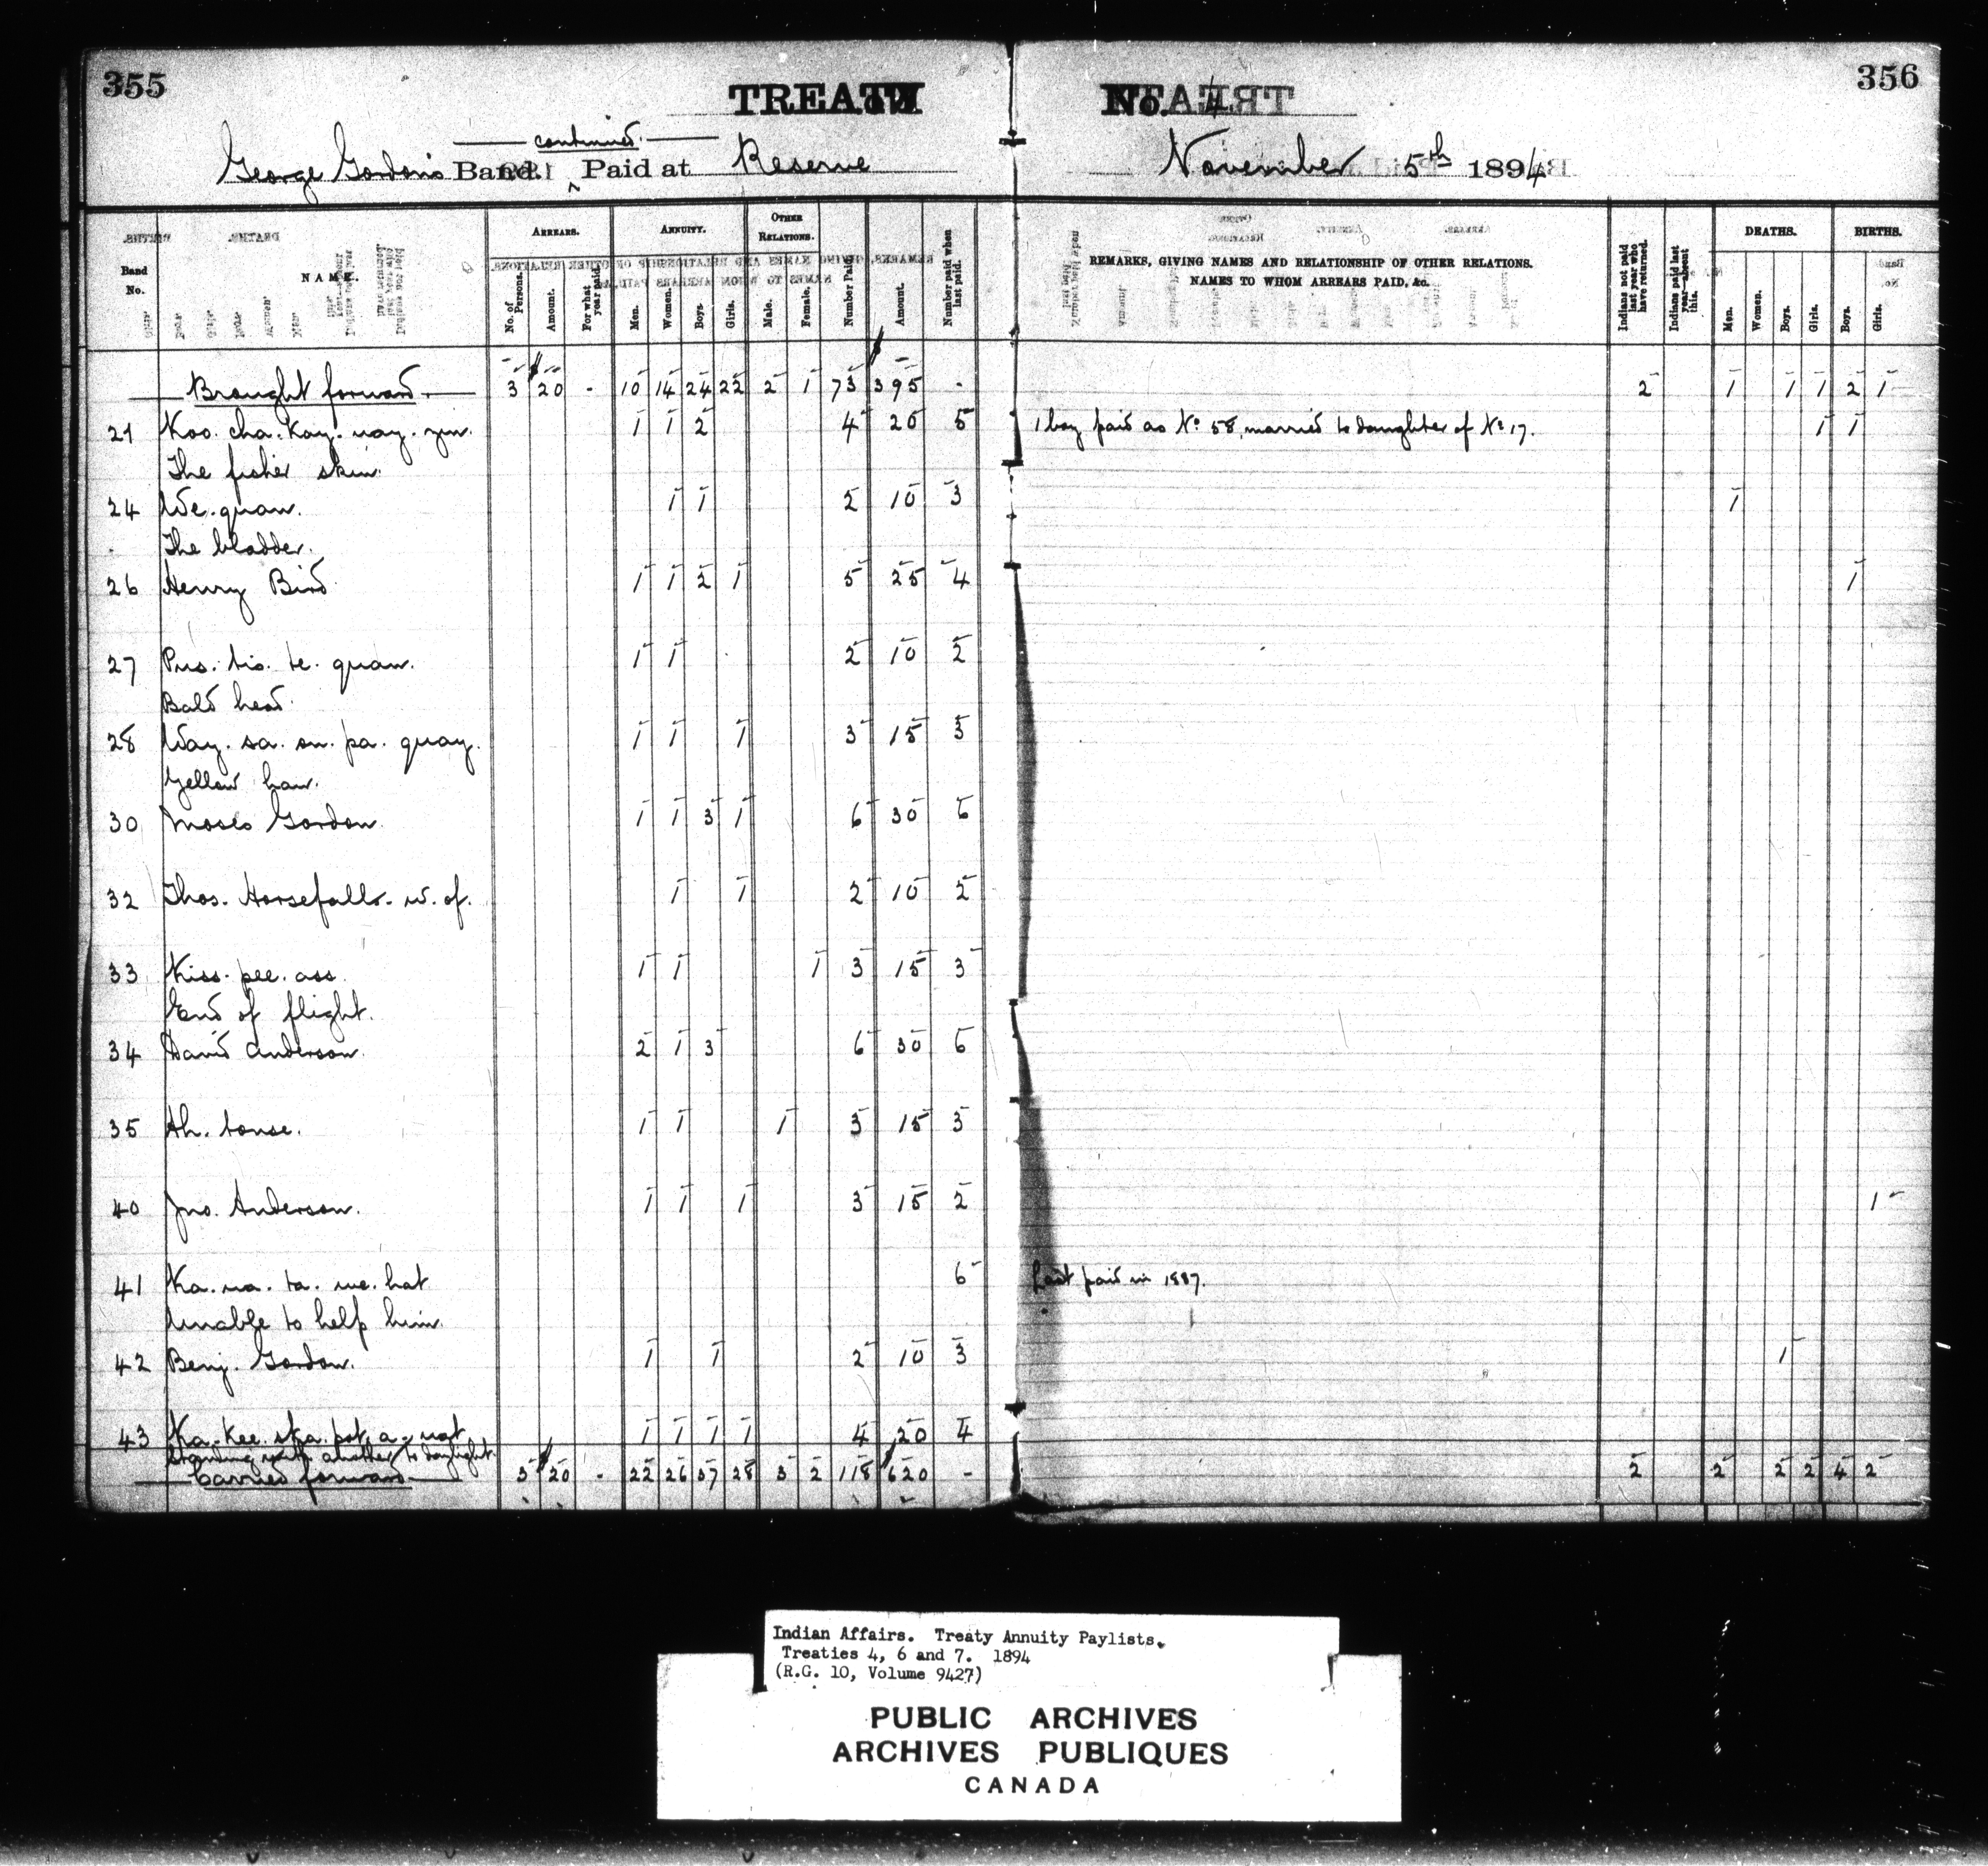 355
356
TREATY
No. 4
continued.
George Gordon's Band. Paid at Reserve
November 5th 1894
Band No.
NAME.
ARREARS.
No. of Persons.
Amount.
For what year paid.
ANNUITY.
Men.
Women.
Boys.
Girls.
OTHER RELATIONS.
Male.
Female.
Number Paid.
Amount.
Number paid when last paid.
REMARKS, GIVING NAMES AND RELATIONSHIP OF OTHER RELATIONS.
NAMES TO WHOM ARREARS PAID, &c.
Indians not paid last year who have returned.
Indians paid last year—absent this.
DEATHS.
Men.
Women.
Boys.
Girls.
BIRTHS.
Boys.
Girls.
Brought forward 3 $20 - 10 14 24 22 2 1 73 $395 - 2 1 1 1 2 1
21 Koo. cha. Kay. way. yin. 1 1 2 4 20 5 1 boy paid as No. 58, married to daughter of No. 17. 1 1
The fisher skin.
24 We. quan. 1 1 2 10 3 1
The bladder.
26 Henry Bird 1 1 2 1 5 25 4 1
27 Pus. tis. te. quan. 1 1 2 10 2
Bald head.
28 Way. sa. on. pa. quay. 1 1 1 3 15 3
Yellow
30 Moses Gordon 1 1 3 1 6 30 6
32 Thos. Horsefall. w. of. 1 1 2 10 2
33 Kiss. pee. ass. 1 1 1 3 15 3
End of flight.
34 David Anderson. 2 1 3 6 30 6
35 Ah. tonse. 1 1 1 3 15 3
40 Jno. Anderson. 1 1 1 3 15 2 1
41 Ka. na. ta. we. hat 6 Last paid in 1887.
Unable to help him.
42 Benj. Gordon. 1 1 2 10 3 1
43 Ka. Kee. ska. pot. a. wat 1 1 1 1 4 20 4
another to daylight.
Carried forward 3 $20 - 22 26 37 28 3 2 118 $620 - 2 2 2 2 4 2
Indian Affairs. Treaty Annuity Paylists.
Treaties 4, 6 and 7. 1894
(R.G. 10, Volume 9427)
PUBLIC ARCHIVES
ARCHIVES PUBLIQUES
CANADA